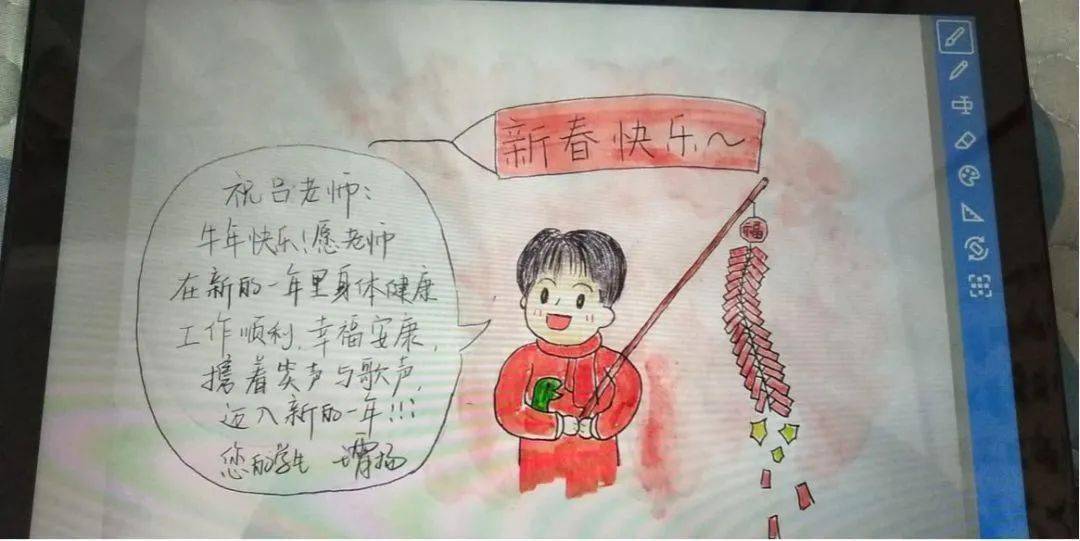 新春快乐～
福
祝吕老师：
牛年快乐！愿老师
在新的一年里身体健康
工作顺利，幸福安康，
携着笑声与歌声，
迈入新的一年！！！
您的学生